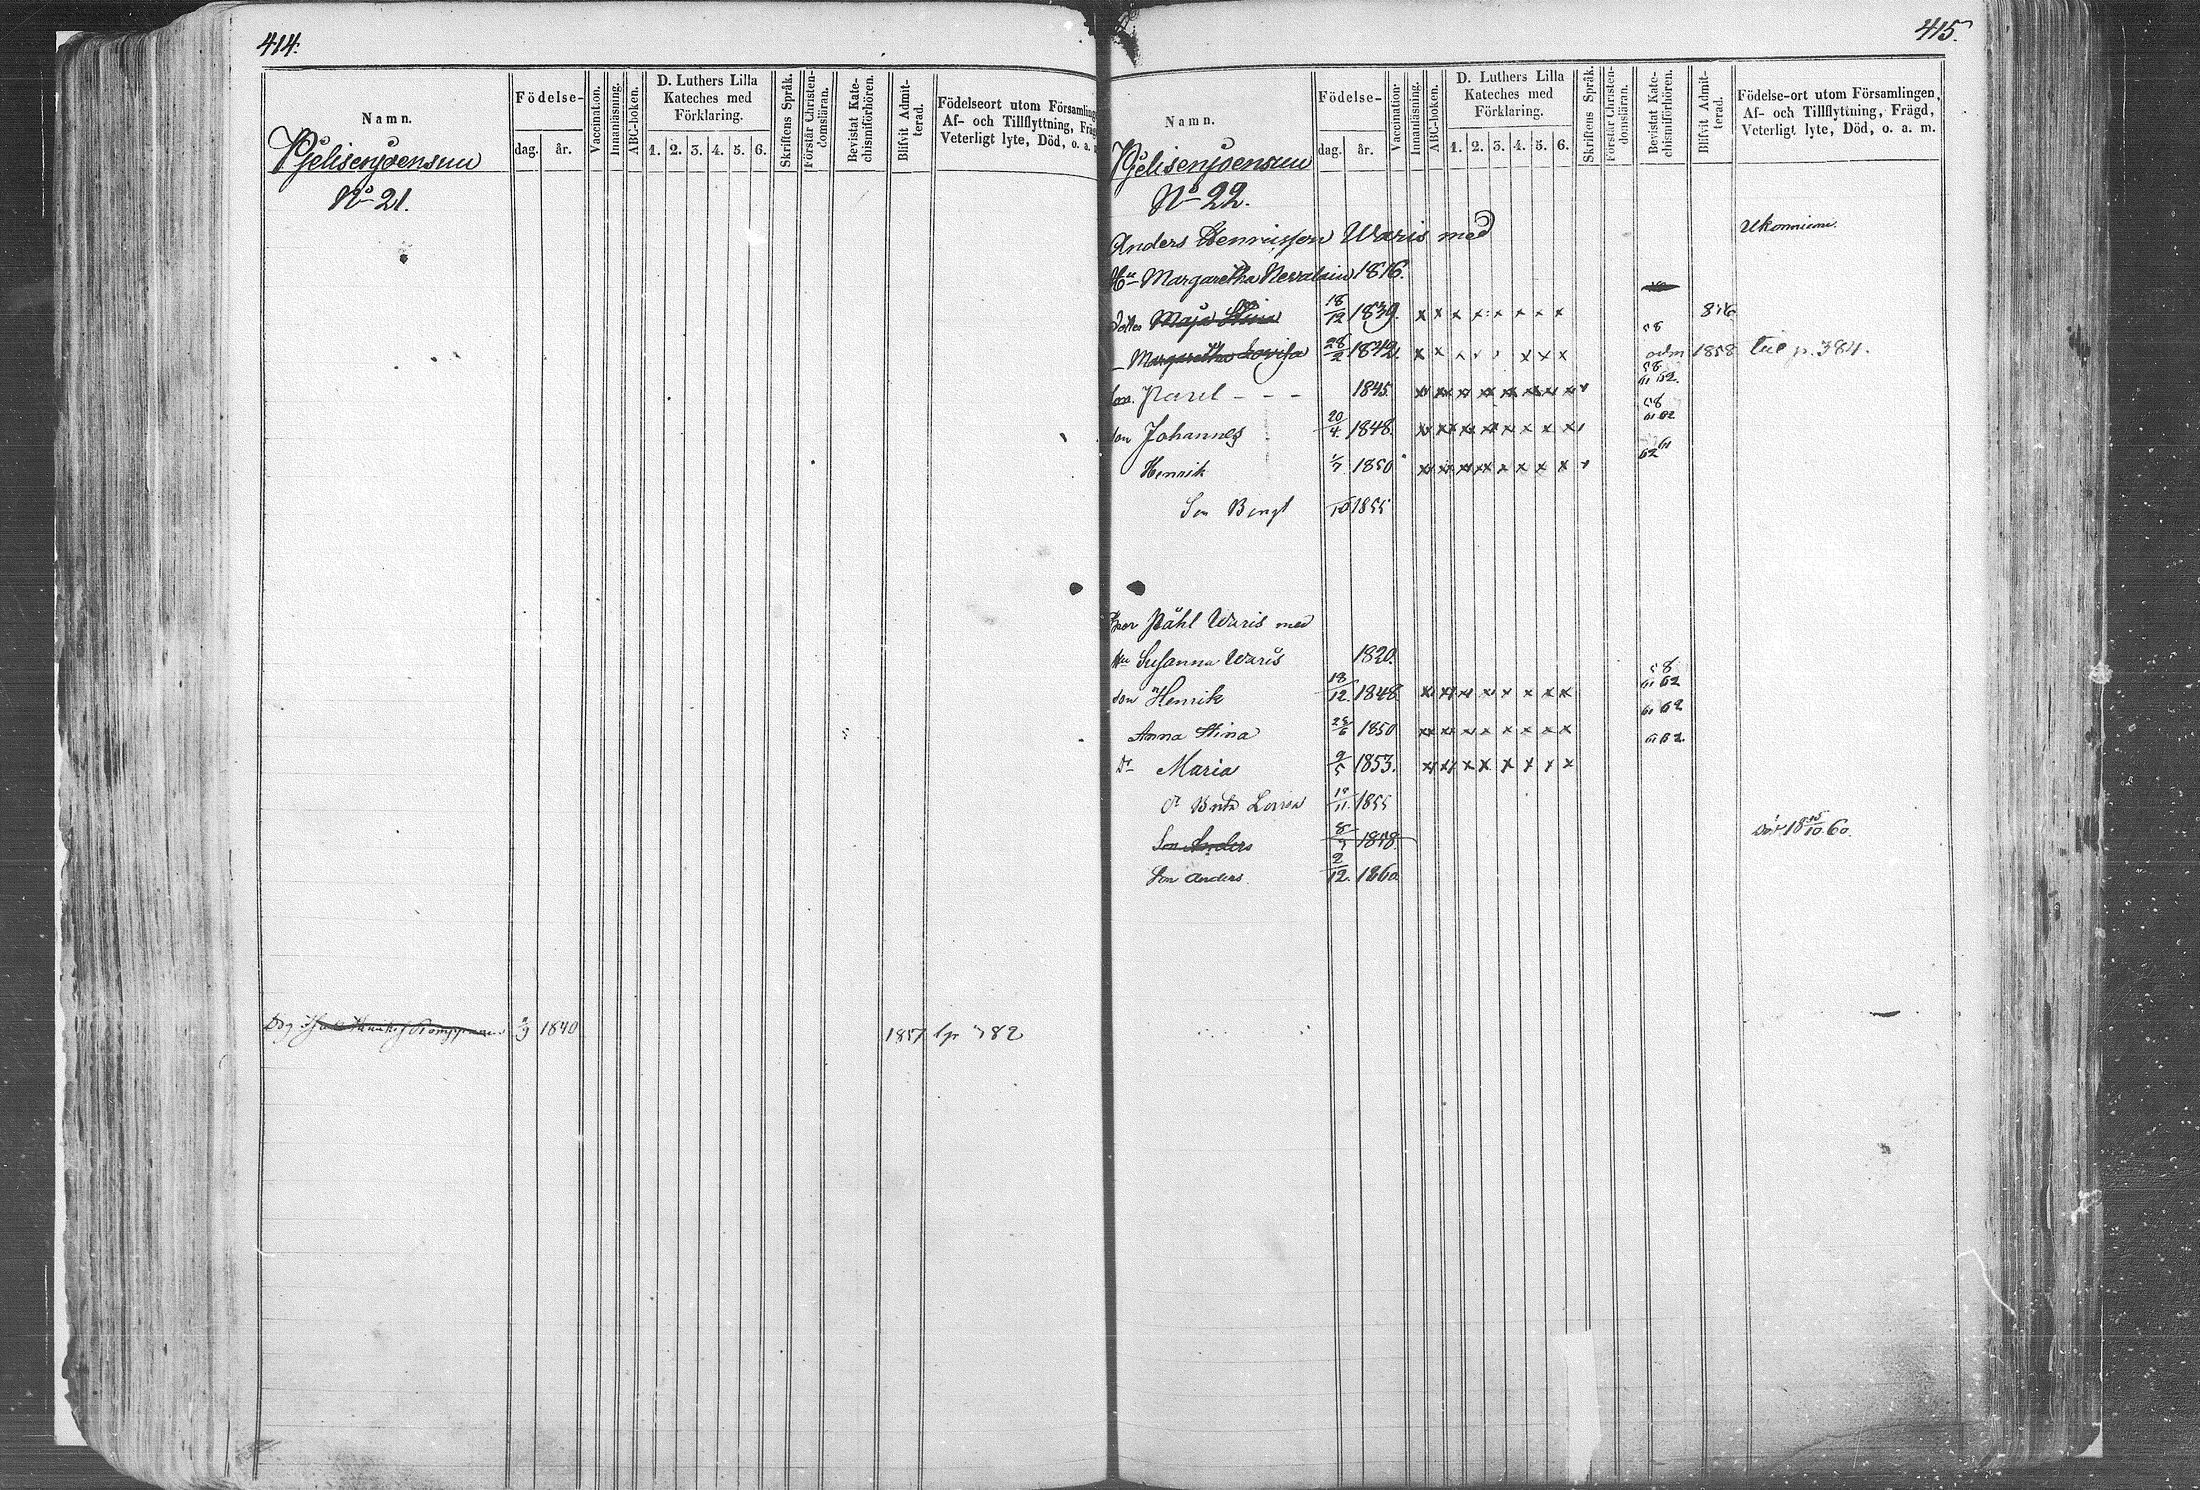 414.
Namn.
Födelse-
dag. år.
Vaccination.
Innanläsning.
ABC-boken.
D. Luthers Lilla
Kateches med
Förklaring.
1. 2. 3. 4. 5. 6.
Skriftens Språk.
Förstår Christen-
domsläran.
Bevistat Kate-
chismiförhören.
Blifvit Admit-
terad.
Födelseort utom Församling
Af- och Tillflyttning, Fräg
Veterligt lyte, Död, o. a.
No 21.
1840 1857 82
415.
Namn.
Födelse-
dag. år.
Vaccination
Innanläsning.
ABC-boken.
D. Luthers Lilla
Kateches med
Förklaring.
1. 2. 3. 4. 5. 6.
Skriftens Språk.
Förstår Christen-
domsläran.
Bevistat Kate-
chismiförhören.
Blifvit Admit-
terad.
Födelse-ort utom Församlingen,
Af- och Tillflyttning, Frägd,
Veterligt lyte, Död, o. a. m.
No 22.
Anders Henriksson Waris med
Hu Margaretha Nevalain 1816.
Maja Stina 18/12 1839. x x x x x x x x
Margaretha Lovisa 28/2 1842 x x x x x 58 adm 1858 p. 384.
Pavel - - - 1845. 58 61 62.
Son Johannes 20/4. 1848. 58 61 62
Henrik 1/7 1850 61 62
Son Bengt /10 1855
Bror Påhl Waris med
Hu Susanna Waris 1820.
Son Henrik 18/12. 1848 58 61 62
Anna Stina /6 1850 61 62
Dr Maria 9/5 1853. 61 62.
Dr Brita Lovisa /11. 1855
Son Anders 8/7 1858. Död 18 /10 60.
Son Anders 2/12. 1860